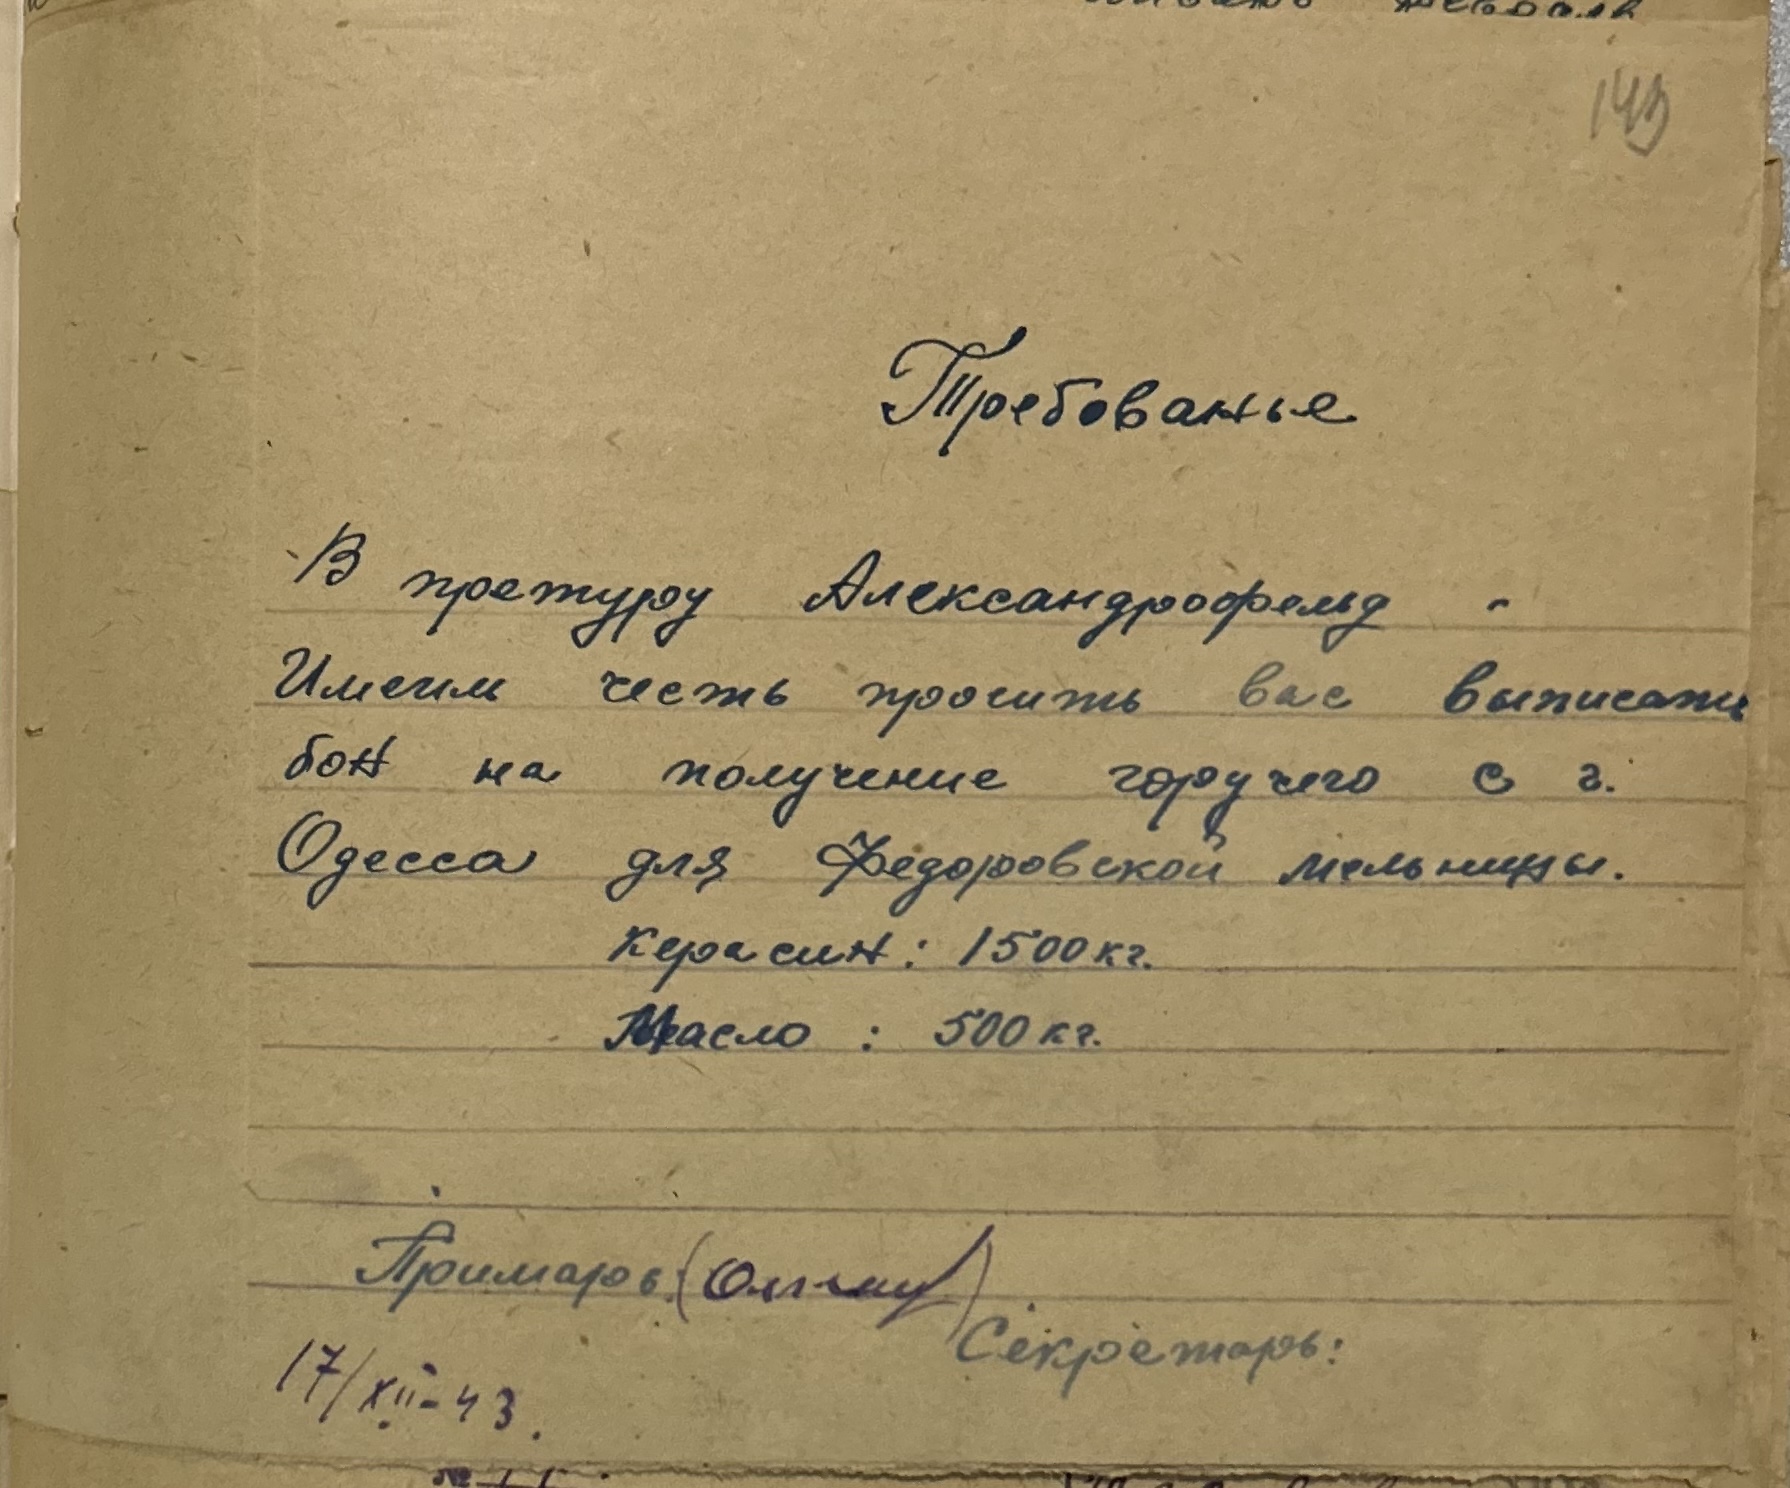 149
Требованье
В претуру Александрофельд -
Имеим честь просить вас выписать
бон на получение горучего с г.
Одесса для Федоровской мельницы.
Керасин: 1500 кг.
Масло : 500 кг.
Примарь: ( )
Секретарь:
17/XII-43.